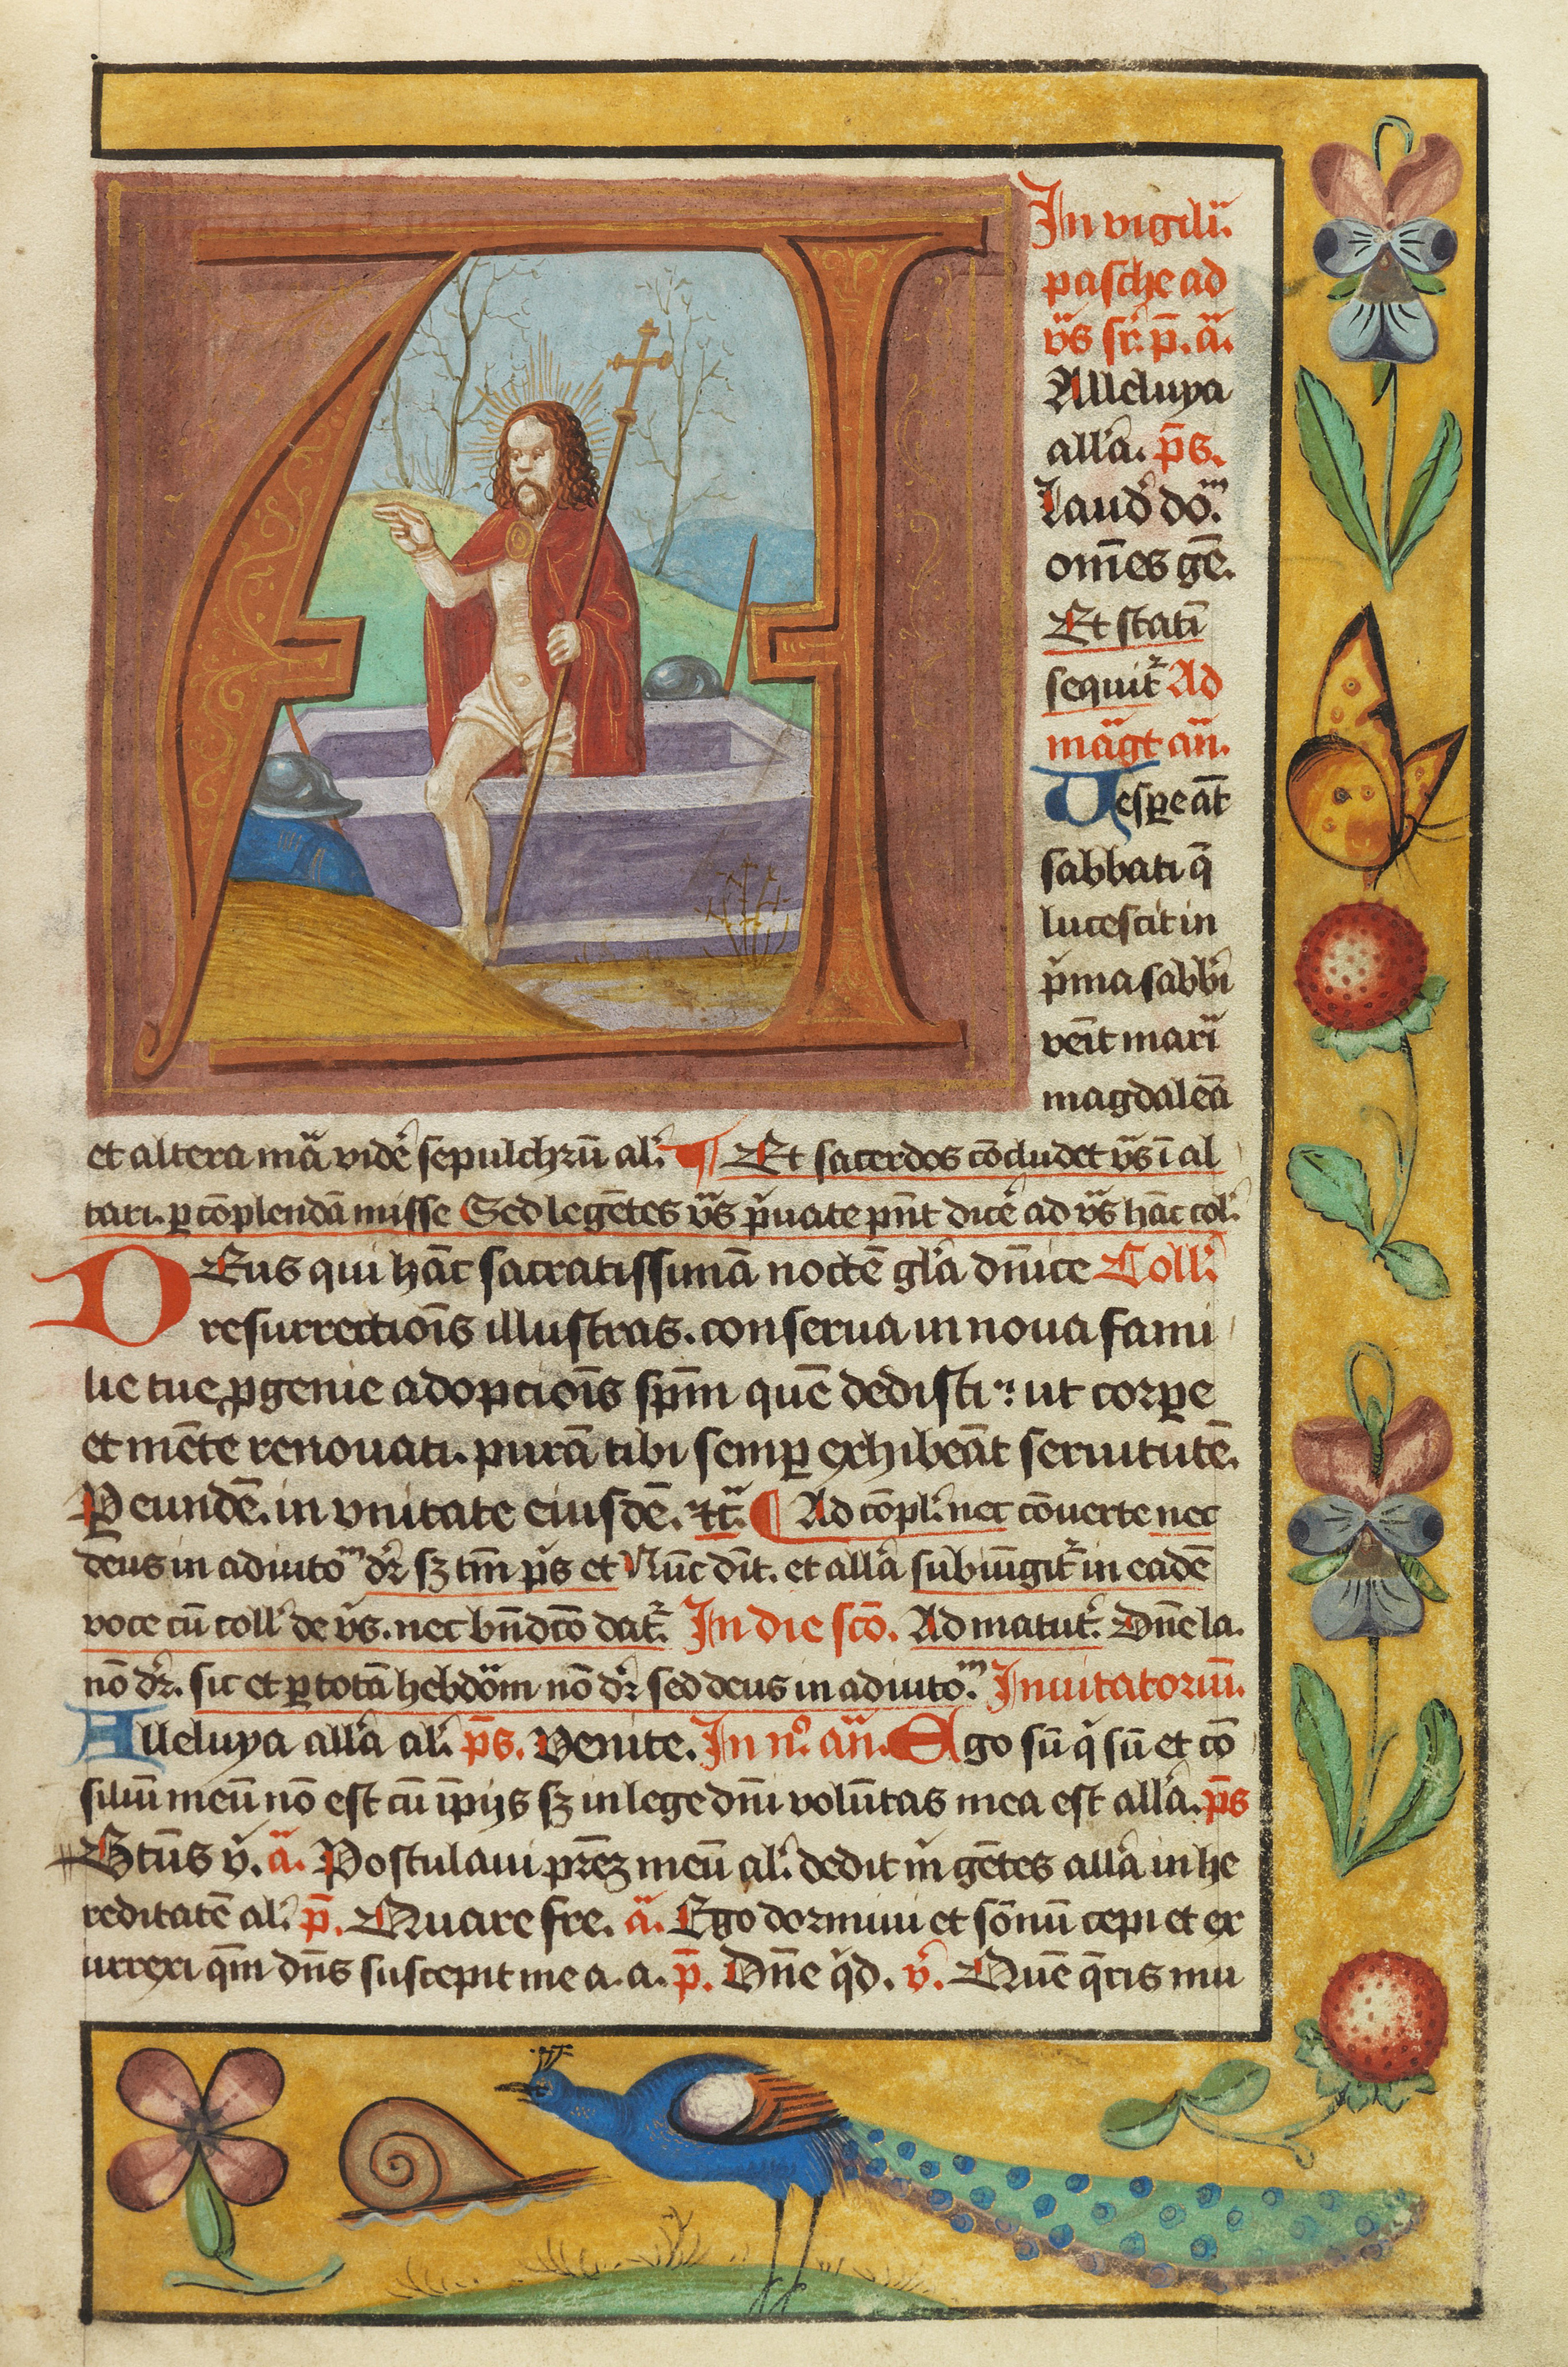 In vigilia
pasche ad
v̄s sr̄. p̄. ā.
Alleluya
all'a. p̄s.
Laud' do.ᵐ
om̄es gē.
Et stati᷑
sequit᷑ Ad
māgt an̄.
Vesꝑe āt
sabbati q̄
lucescit in
p'ma sabb'i
ven̄it mari᷑
magdalen̄a
et altera m̄a vider̄ sepulchrū al'. ¶ Et sacerdos cōcludet v̄s ī al
tari. ꝑ cōplendā misse Sed legētes v̄s p'uate pn̄t dicē ad v̄s hāc col'.
DEus qui hāc sacratissimā noctē gl'a dn̄ice Coll'
resurrectiōis illustras. conserua in noua fami
lie tue ꝓgenie adopciōis sp̄m quē dedisti: ut corꝑe
et mēte renouati. purā tibi semꝑ exhibeāt seruitutē.
P eundē. in vnitate eiusdē. ⁊c̄. ¶ Ad cōpl'. nec cōuerte nec
deus in adiutoᵐ dr̄ sꝫ tm̄ p̄s et Nūc dīt. et all'a subiūgit᷑ in eadē
voce cū coll' de v̄s. nec bn̄dc̄o dat᷑. In die sc̄o. Ad matut'. Dn̄e la.
nō dr̄. sic et ꝑ totā hebdōm nō dr̄ sed deus in adiuto.ᵐ Inuitatoriū.
Alleluya all'a al'. p̄s. Venite. In n°. an̄. Ego sū q̄ sū et cō
siliū meū nō est cū īpijs sꝫ in lege dn̄i volūtas mea est all'a. p̄s
Btūs v̄. ā. Postulaui pr̄eꝫ meū al'. dedit m̄ gētes all'a in he
reditatē al'. p̄. Quare fre. ā. Ego dormiui et sōnū cepi et ex
urrexi qm̄ dn̄s suscepit me a. a. p̄. Dn̄e q̄d. v̄. Quē q̄ris mu